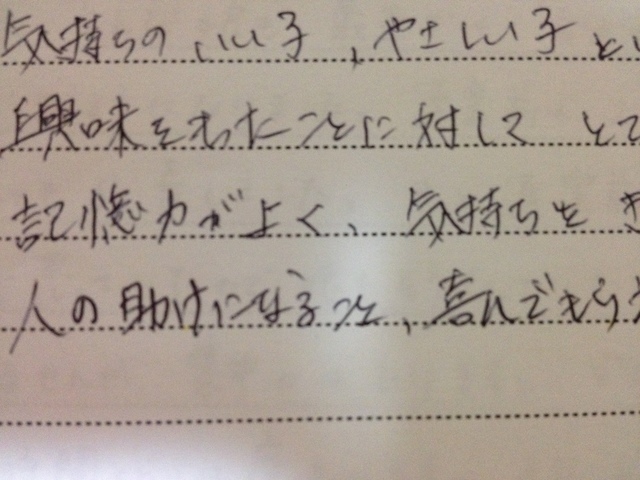 気持ちの いい子、やさしい子 と
興味をもったことに対して とて
記憶力がよく、気持ちを き
人の助けになること、喜んでもらう